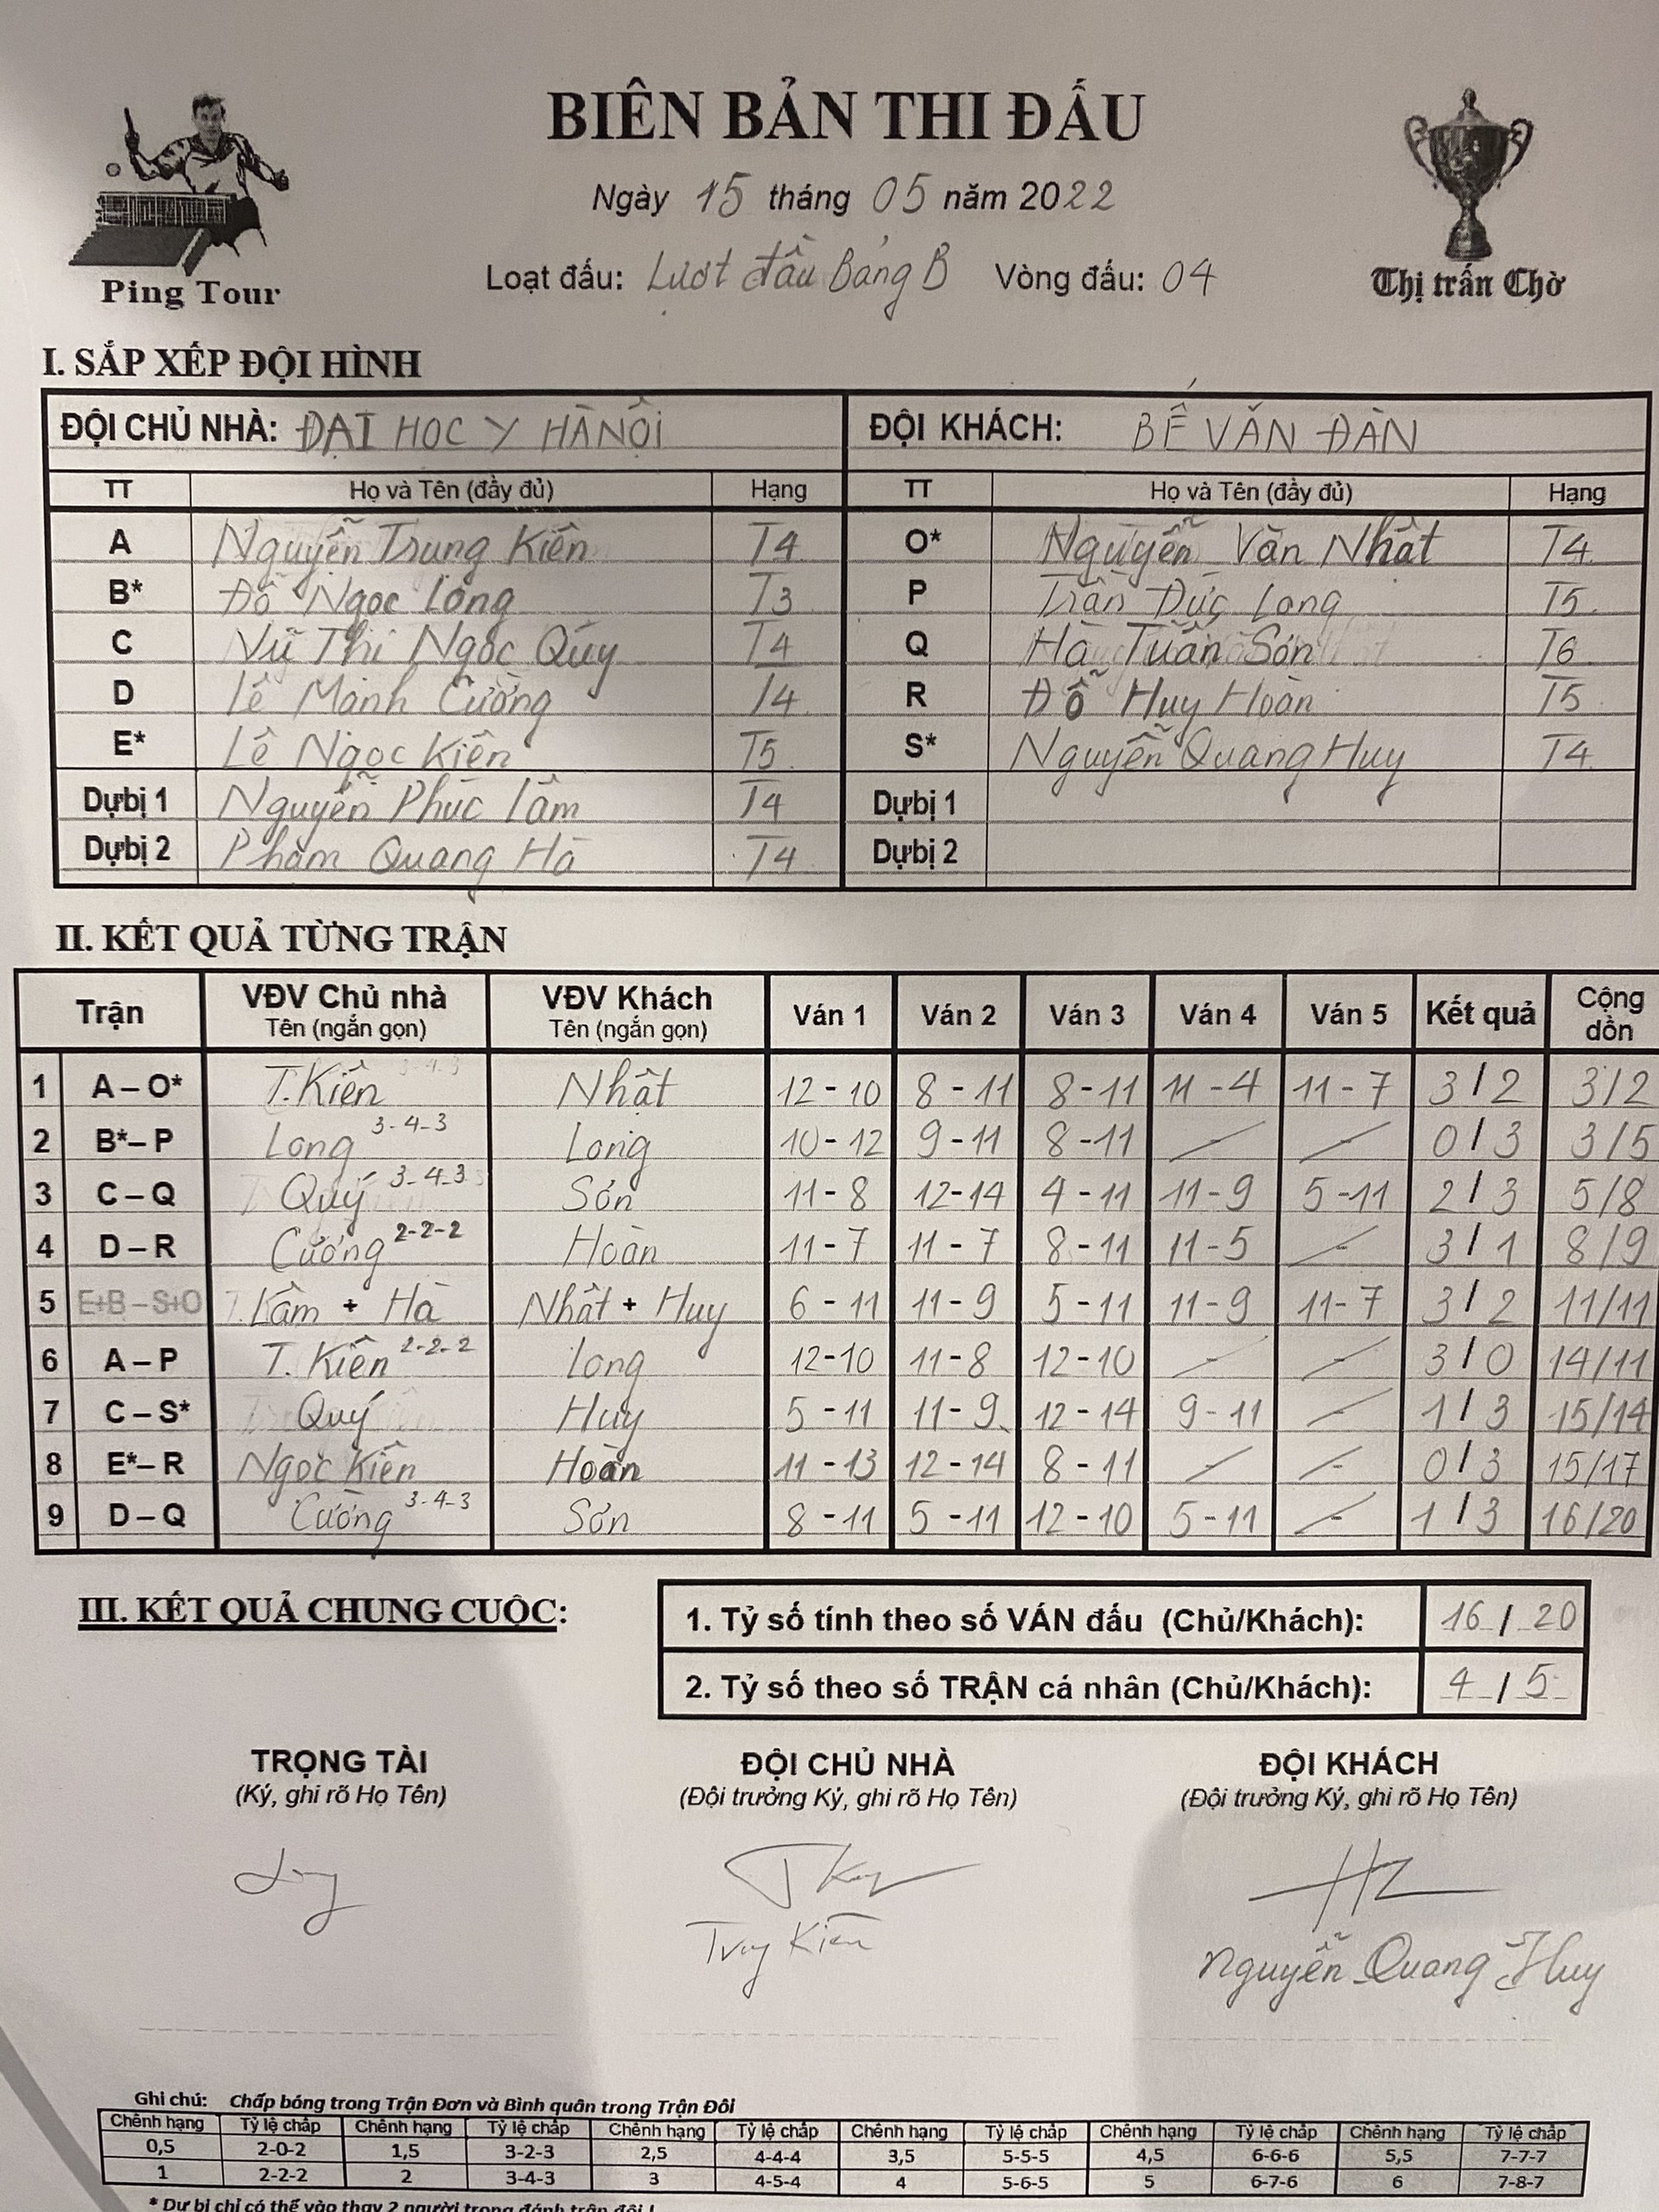 BIÊN BẢN THI ĐẤU
Ngày 15 tháng 05 năm 2022
Loạt đấu: Lượt đấu Bảng B Vòng đấu: 04
Ping Tour
Thị trấn Chờ
I. SẮP XẾP ĐỘI HÌNH
ĐỘI CHỦ NHÀ: ĐẠI HỌC Y HÀ NỘI ĐỘI KHÁCH: BẾ VĂN ĐÀN
TT Họ và Tên (đầy đủ) Hạng TT Họ và Tên (đầy đủ) Hạng
A Nguyễn Trung Kiên T4 O* Nguyễn Văn Nhất T4
B* Đỗ Ngọc Long T3 P Trần Đức Long T5
C Vũ Thị Ngọc Qúy T4 Q Hà Tuấn Sơn T6
D Lê Mạnh Cường T4 R Đỗ Huy Hoàn T5
E* Lê Ngọc Kiên T5 S* Nguyễn Quang Huy T4
Dự bị 1 Nguyễn Phúc Lâm T4 Dự bị 1
Dự bị 2 Phạm Quang Hà T4 Dự bị 2
II. KẾT QUẢ TỪNG TRẬN
Trận VĐV Chủ nhà VĐV Khách Ván 1 Ván 2 Ván 3 Ván 4 Ván 5 Kết quả Cộng dồn
Tên (ngắn gọn) Tên (ngắn gọn)
1 A – O* T. Kiên Nhất 12 - 10 8 - 11 8 - 11 11 - 4 11 - 7 3 / 2 3/2
2 B* – P Long 3-4-3 Long 10 - 12 9 - 11 8 - 11 - - 0 / 3 3/5
3 C – Q Quý 3-4-3 Sơn 11 - 8 12 - 14 4 - 11 11 - 9 5 - 11 2 / 3 5/8
4 D – R Cường 2-2-2 Hoàn 11 - 7 11 - 7 8 - 11 11 - 5 - 3 / 1 8/9
5 E+B – S+O Lâm + Hà Nhất + Huy 6 - 11 11 - 9 5 - 11 11 - 9 11 - 7 3 / 2 11/11
6 A – P T. Kiên 2-2-2 Long 12 - 10 11 - 8 12 - 10 - - 3 / 0 14/11
7 C – S* Quý Huy 5 - 11 11 - 9 12 - 14 9 - 11 - 1 / 3 15/14
8 E* – R Ngọc Kiên Hoàn 11 - 13 12 - 14 8 - 11 - - 0 / 3 15/17
9 D – Q Cường 3-4-3 Sơn 8 - 11 5 - 11 12 - 10 5 - 11 - 1 / 3 16/20
III. KẾT QUẢ CHUNG CUỘC:
1. Tỷ số tính theo số VÁN đấu (Chủ/Khách): 16 / 20
2. Tỷ số theo số TRẬN cá nhân (Chủ/Khách): 4 / 5
TRỌNG TÀI ĐỘI CHỦ NHÀ ĐỘI KHÁCH
(Ký, ghi rõ Họ Tên) (Đội trưởng Ký, ghi rõ Họ Tên) (Đội trưởng Ký, ghi rõ Họ Tên)
Kiên
Nguyễn Quang Huy
Ghi chú: Chấp bóng trong Trận Đơn và Bình quân trong Trận Đôi
Chênh hạng Tỷ lệ chấp Chênh hạng Tỷ lệ chấp Chênh hạng Tỷ lệ chấp Chênh hạng Tỷ lệ chấp Chênh hạng Tỷ lệ chấp Chênh hạng Tỷ lệ chấp
0,5 2-0-2 1,5 3-2-3 2,5 4-4-4 3,5 5-5-5 4,5 6-6-6 5,5 7-7-7
1 2-2-2 2 3-4-3 3 4-5-4 4 5-6-5 5 6-7-6 6 7-8-7
* Dự bị chỉ có thể vào thay 2 người trong đánh trận đôi !